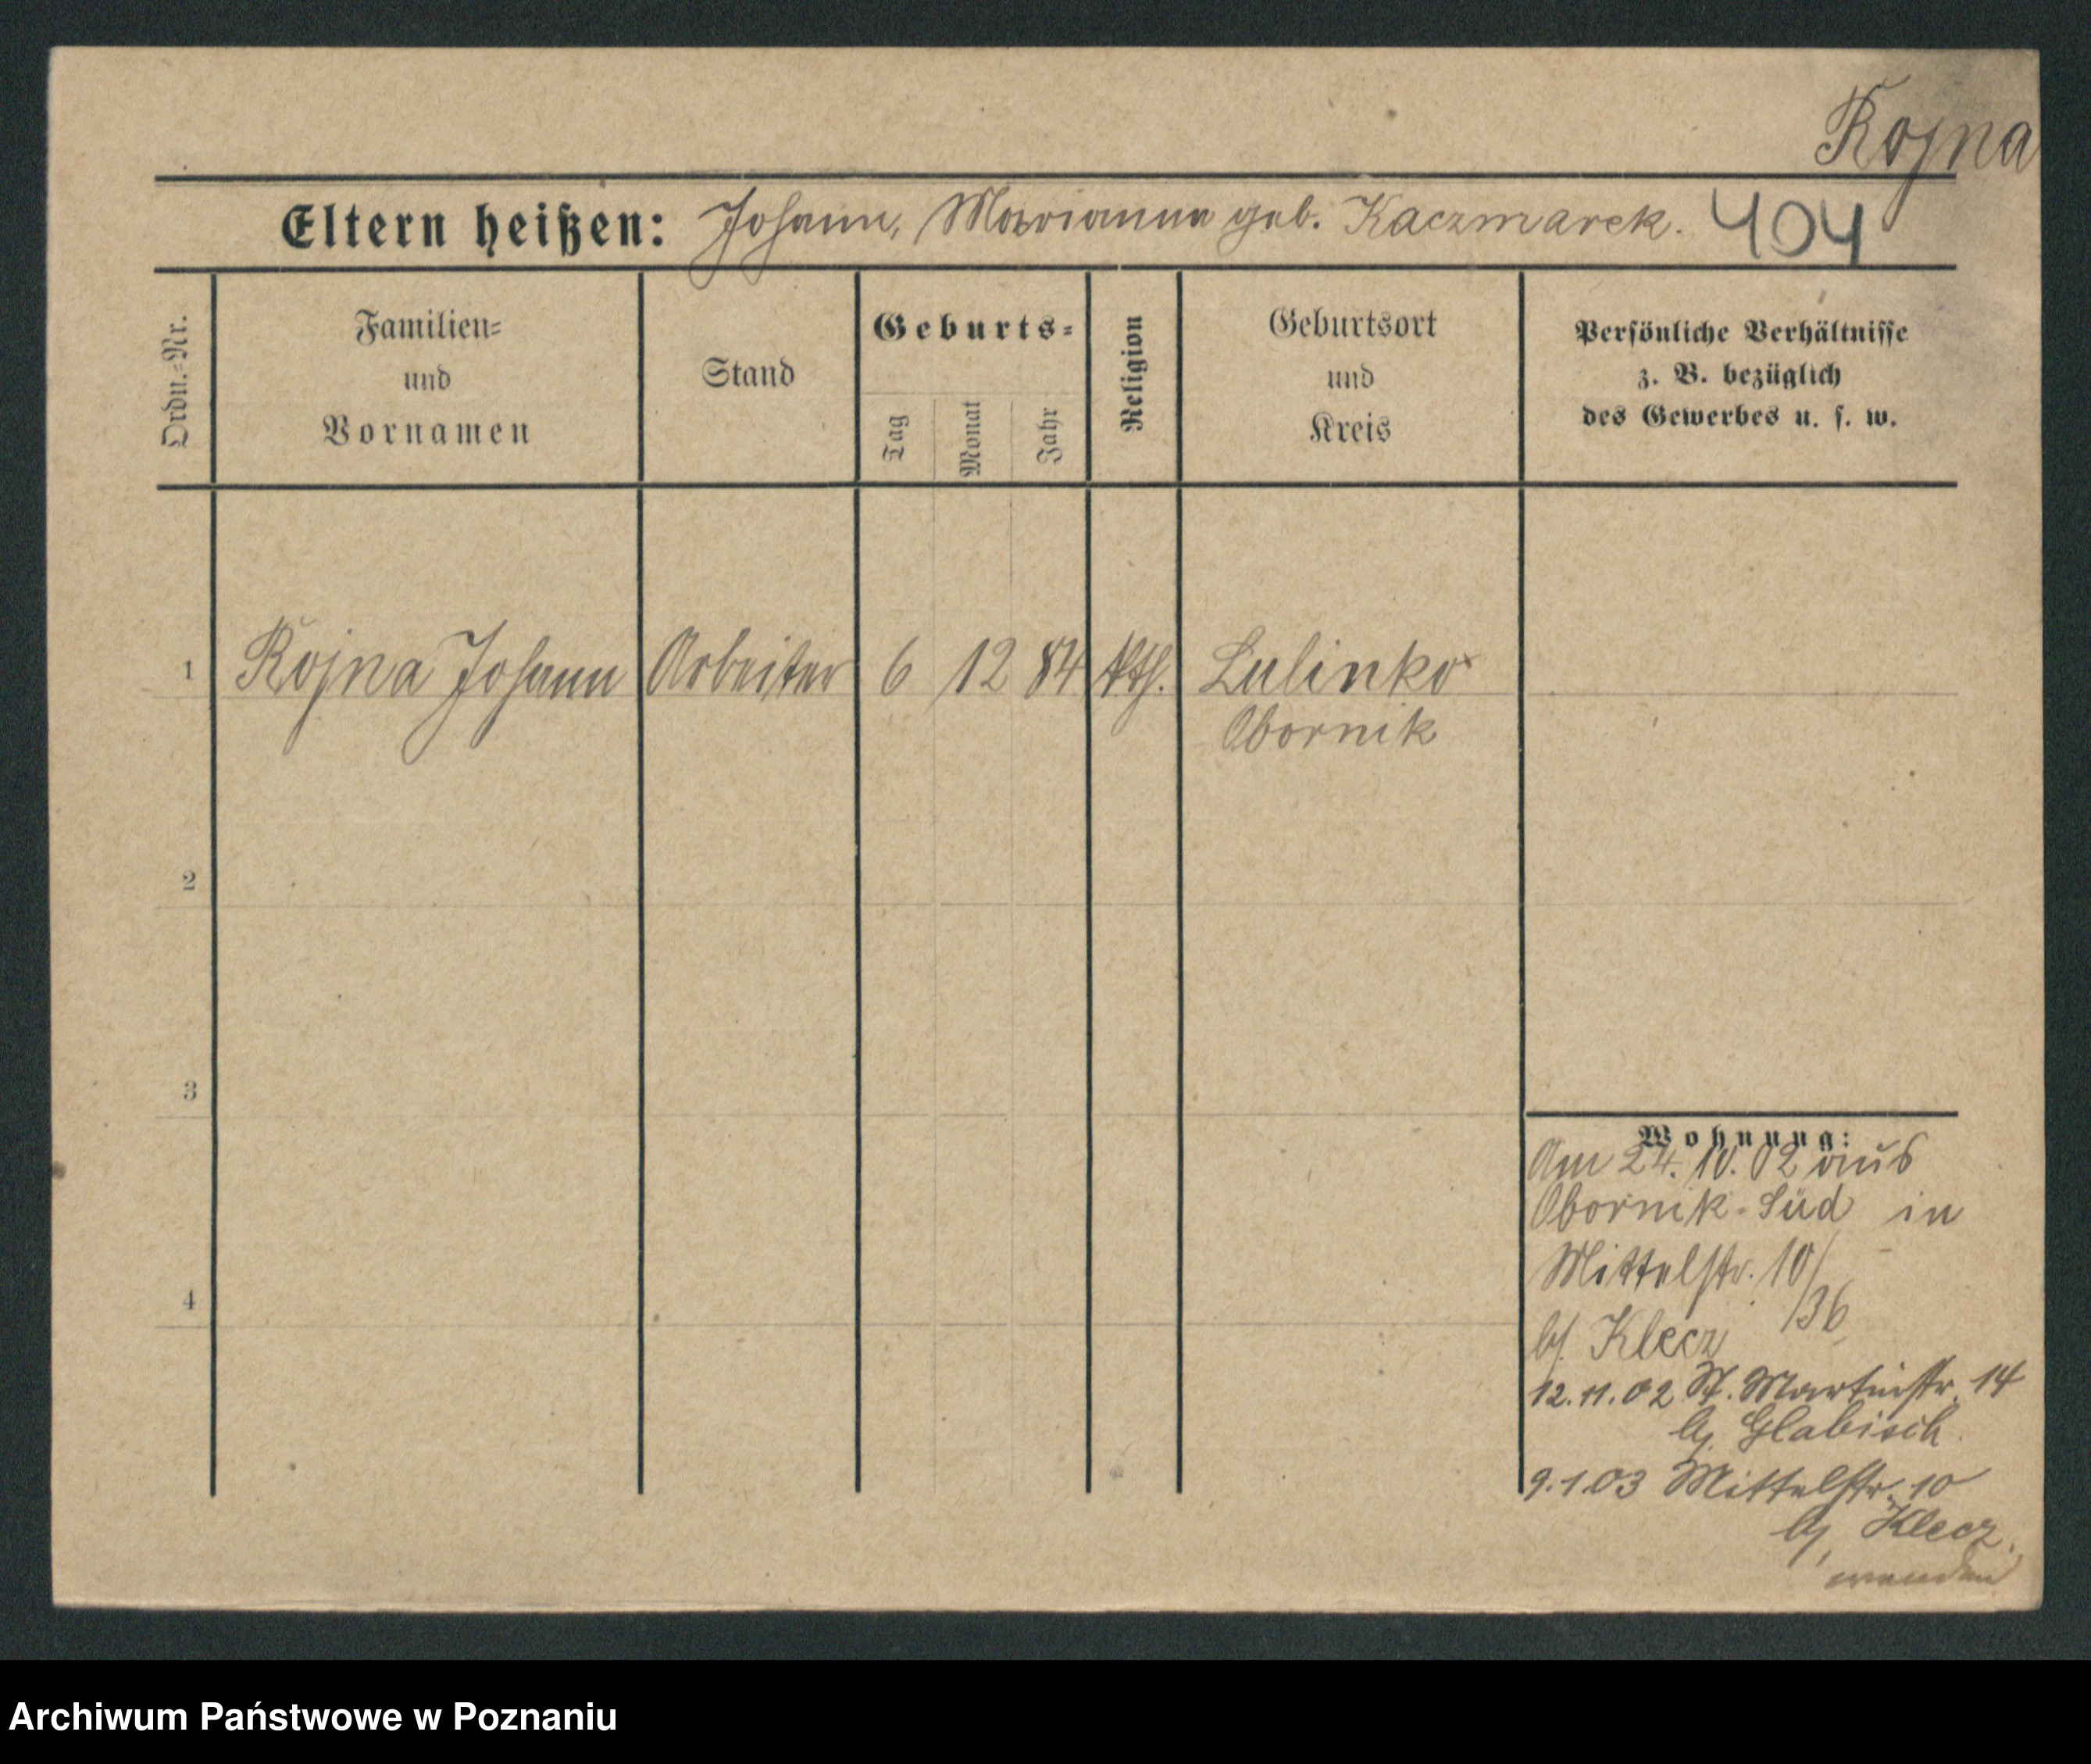 Rojna
Eltern heißen: Johann, Marianna geb. Kaczmarek. 404
Ordn.=Nr.
Familien=
und
Vornamen
Stand
Geburts=
Tag
Monat
Jahr
Religion
Geburtsort
und
Kreis
Persönliche Verhältnisse
z. B. bezüglich
des Gewerbes u. s. w.
1 Rojna Johann Arbeiter 6 12 84 kth. Lulinko
Obornik
2
3
4
Wohnung:
Am 24. 10. 02 aus
Obornik-Süd in
Mittelstr. 10/
/36
bj. Klecz
12.11.02 St. Martinstr. 14
bj. Glabisch.
9.1.03 Mittelstr. 10
bj. Klecz.
wenden
Archiwum Państwowe w Poznaniu